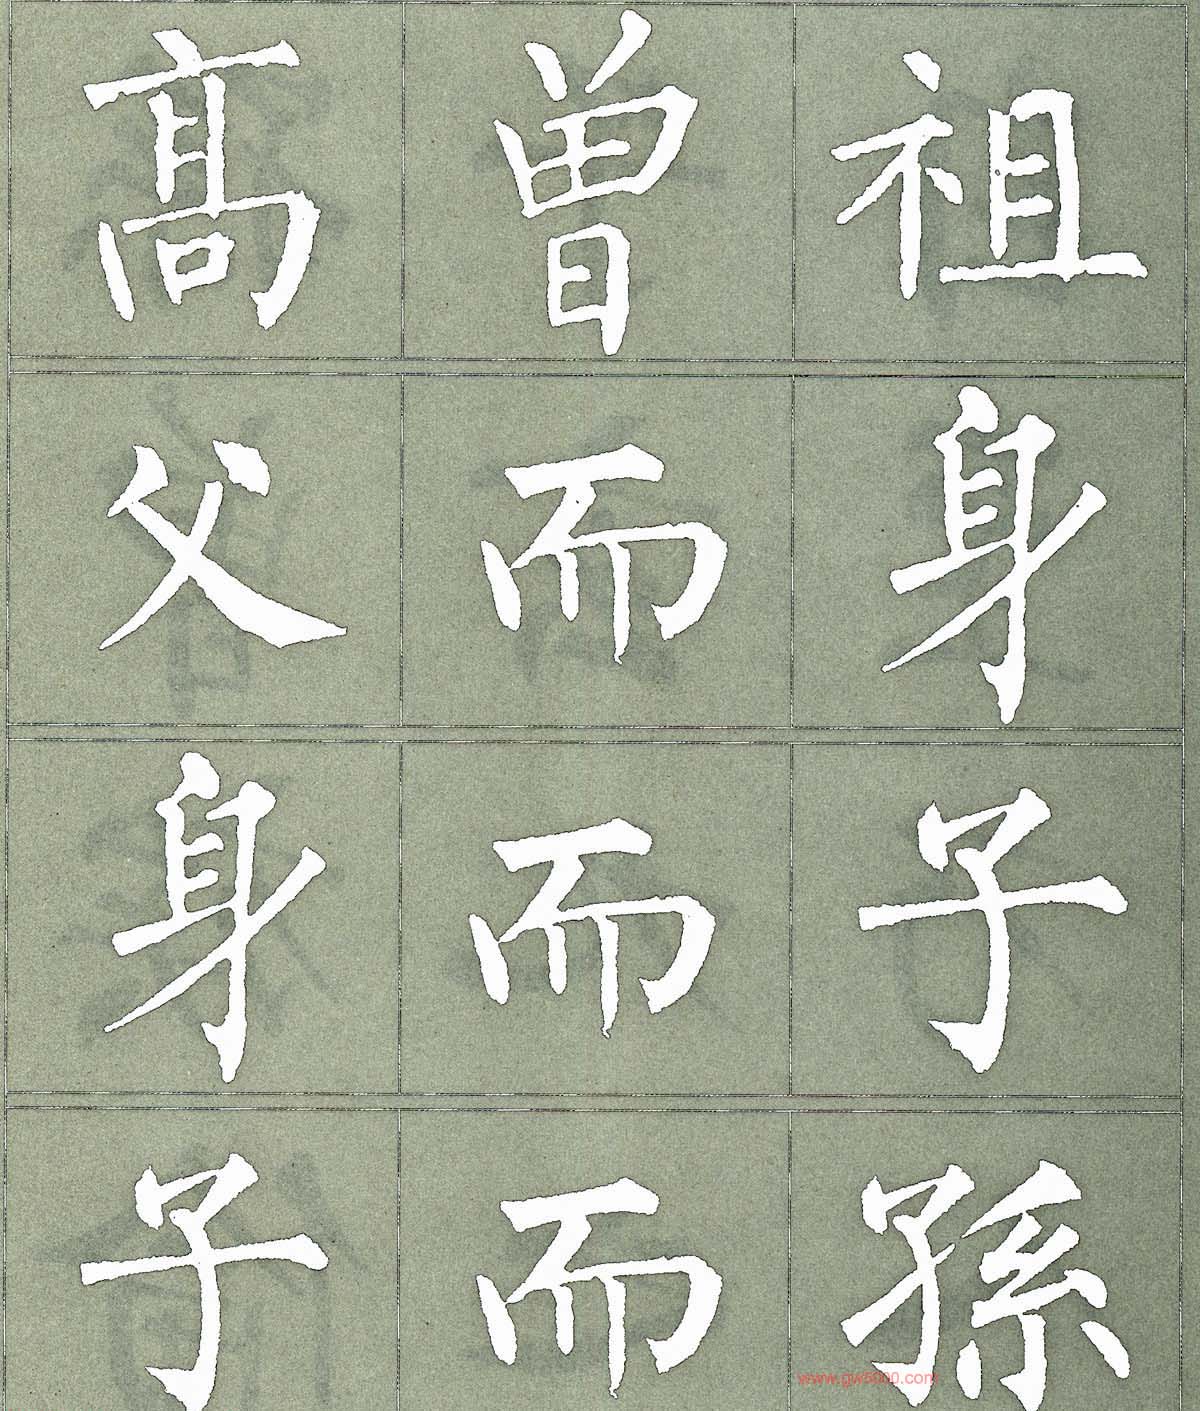 髙曾祖
父而身
身而子
子而孫
www.gw5000.com